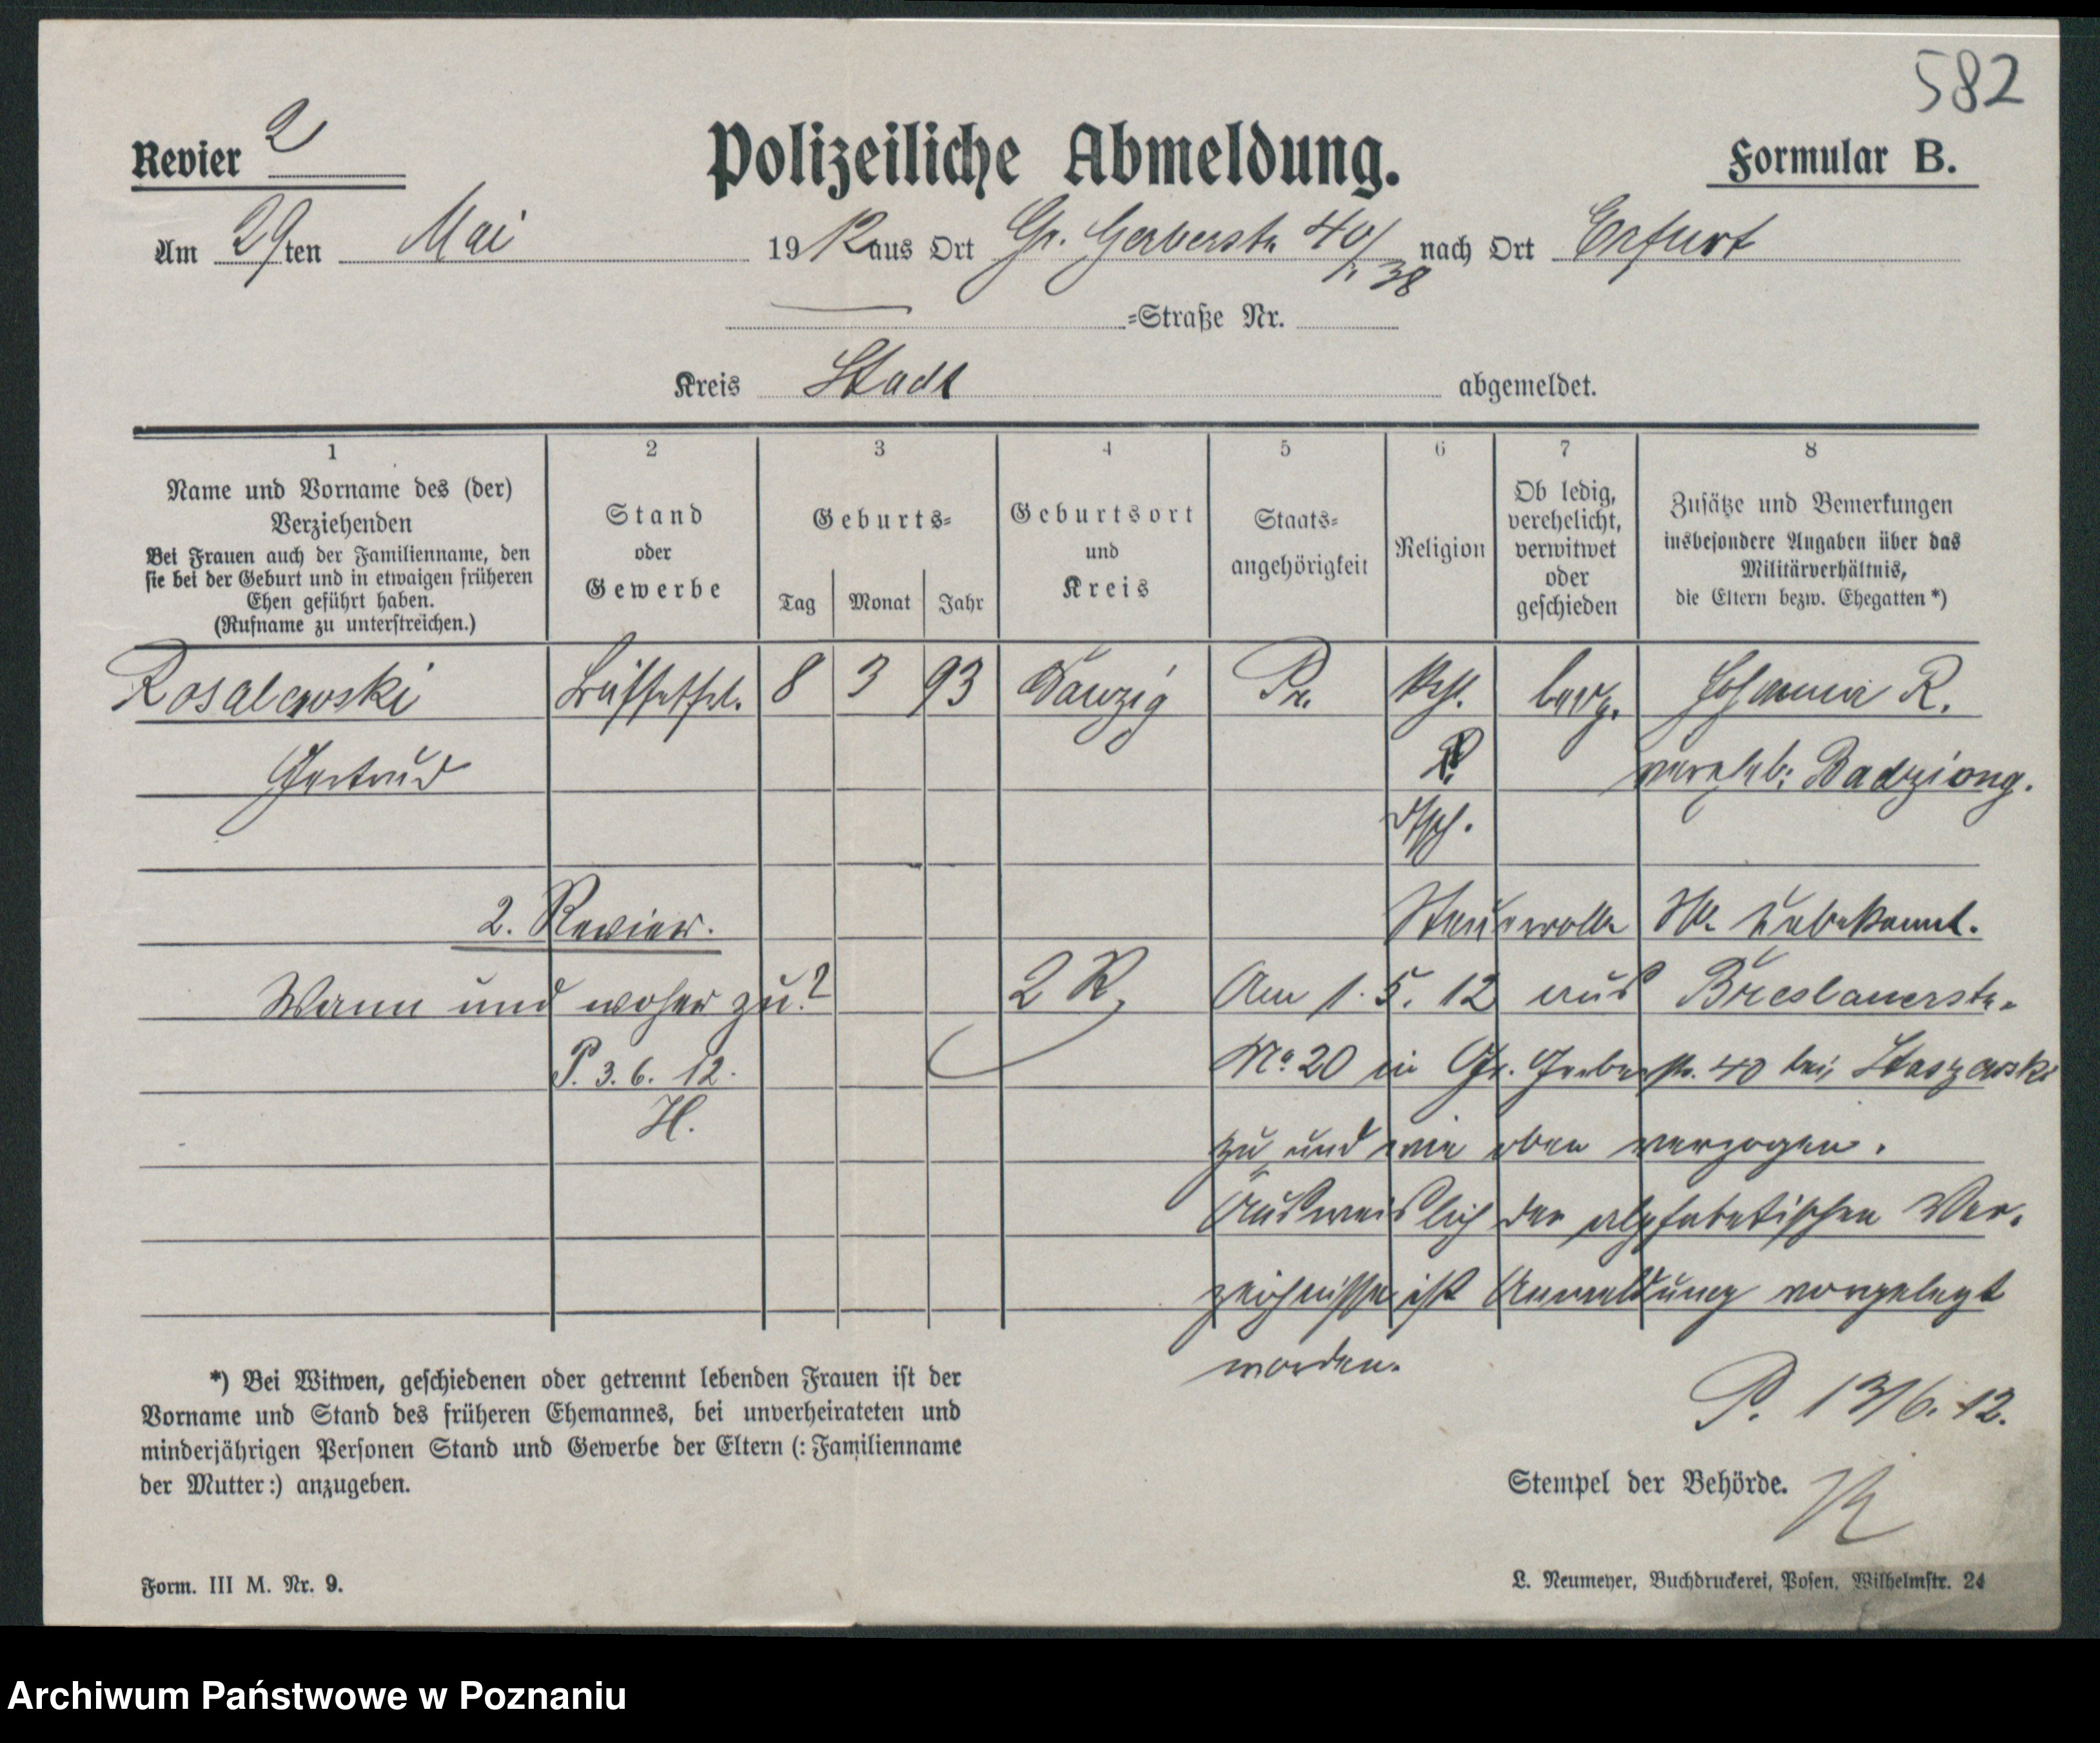 582
Revier 2
Polizeiliche Abmeldung.
Formular B.
Am 29ten Mai 1912 aus Ort Gr. Gerberstr. 40/ 38 nach Ort Erfurt
=Straße Nr.
Kreis Stadt abgemeldet.
1 2 3 4 5 6 7 8
Name und Vorname des (der)
Verziehenden
Bei Frauen auch der Familienname, den
sie bei der Geburt und in etwaigen früheren
Ehen geführt haben.
(Rufname zu unterstreichen.)
Stand
oder
Gewerbe
Geburts=
Tag Monat Jahr
Geburtsort
und
Kreis
Staats=
angehörigkeit
Religion
Ob ledig,
verehelicht,
verwitwet
oder
geschieden
Zusätze und Bemerkungen
insbesondere Angaben über das
Militärverhältnis,
die Eltern bezw. Ehegatten *)
Rosalewski Büffettfrl. 8 3 93 Danzig Pr. kth. ledg. Johanna R.
Gertrud verehel: Badziong.
dtsch.
2. Revier. Steuerrolle unbekannt.
Wann und woher zu? 2 R. Am 1. 5. 12 aus Breslauerstr.
P. 3. 6. 12. No 20 in Gr. Gerberstr. 40 bei Staszewski
H.
zu und wie oben verzogen.
Ausweislich der alphabetischen Ver-
zeichnisse ist Anmeldung vorgelegt
worden.
P. 13/6. 12.
*) Bei Witwen, geschiedenen oder getrennt lebenden Frauen ist der
Vorname und Stand des früheren Ehemannes, bei unverheirateten und
minderjährigen Personen Stand und Gewerbe der Eltern (: Familienname
der Mutter :) anzugeben.
Stempel der Behörde.
Form. III M. Nr. 9.
L. Neumeyer, Buchdruckerei, Posen, Wilhelmstr. 24
Archiwum Państwowe w Poznaniu